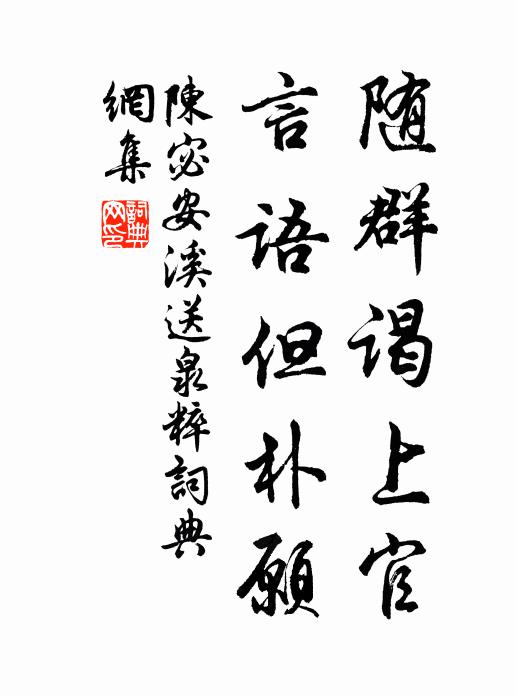 随群谒上官
言语但朴愿
陳宓安溪送泉粹詞典
網集
詞典网印